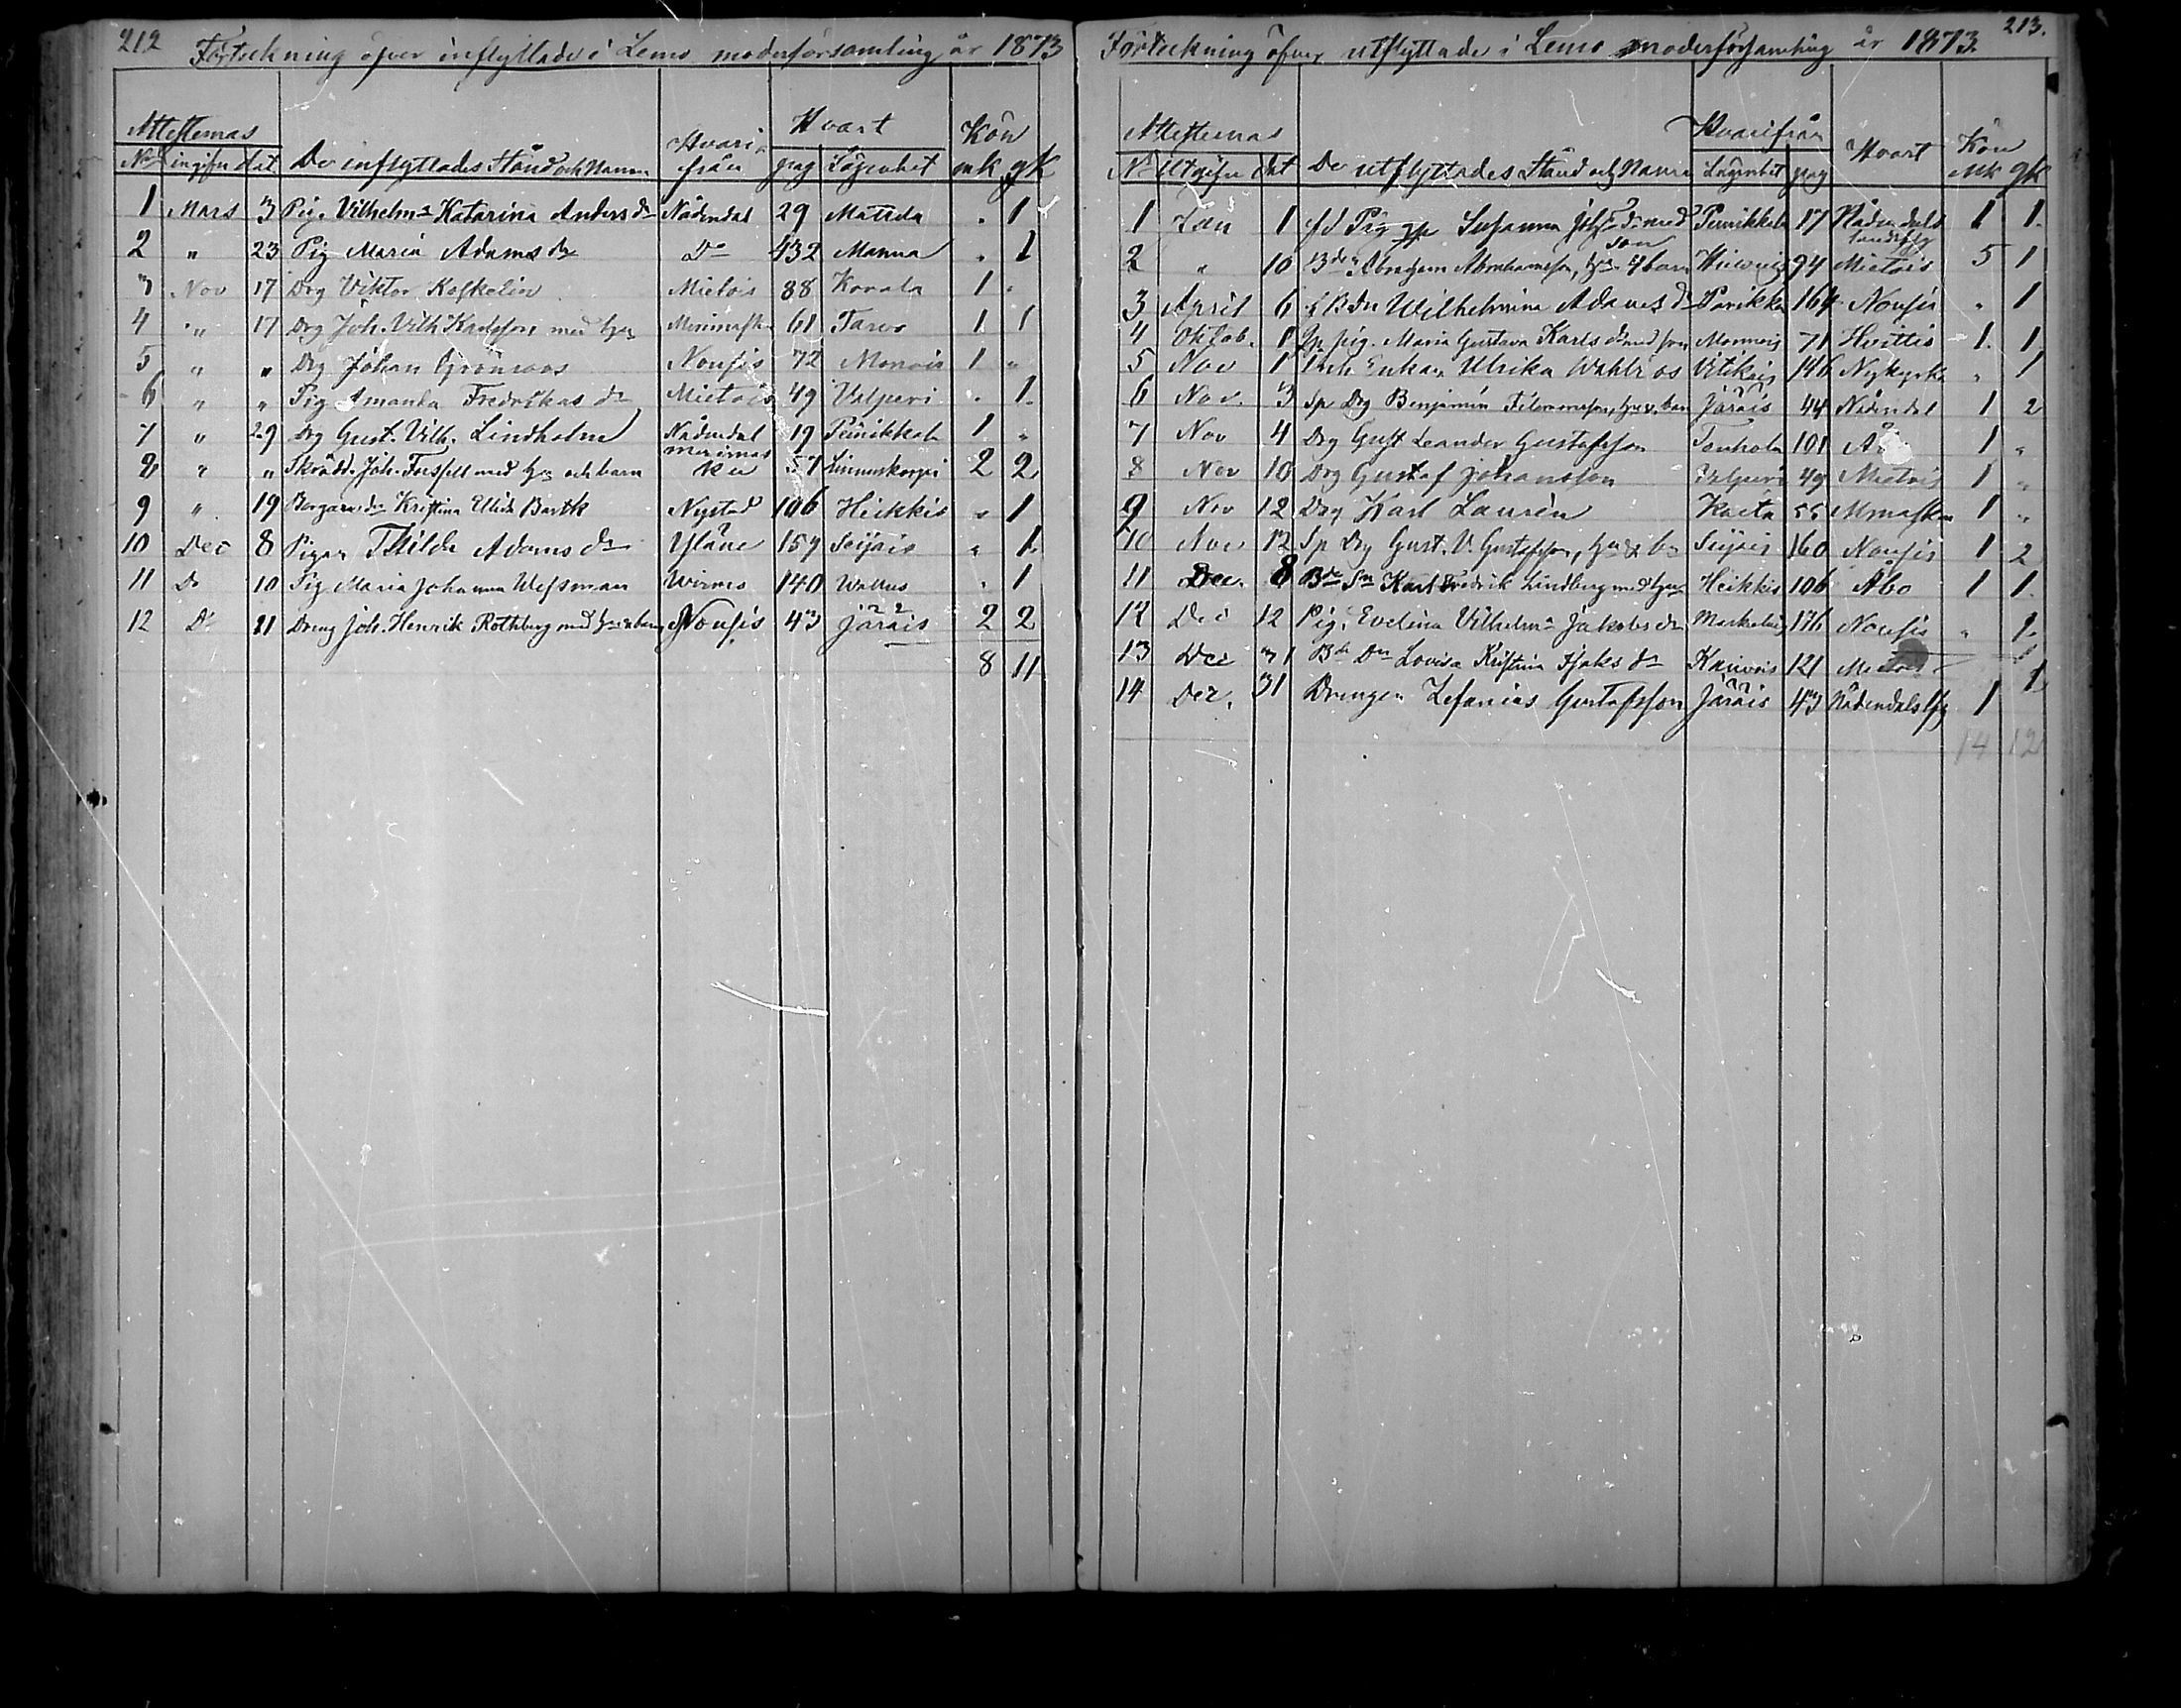 212
Förteckning öfver inflyttade i Lemo moderförsamling år 1873
Attesternas Hvart Kön
No ingifn dat De inflyttades Stånd och Namn Hvarifrån pag Lägenhet mk qk
1 Mars 3 Pig. Vilhelma Katarina Anders dr Nådendal 29 Mattila " 1
2 " 23 Pig Maria Adams dr Do 432 Manna " 1
3 Nov 17 Drg Viktor Koskelin Mietois 88 Korvala 1 "
4 " 17 Drg Joh. Vilh Karlsson med hu 61 Tarvo 1 1
5 " " Drg Johan Grönroos Nousis 72 Monnois 1 "
6 " " Pig Amanda Fredrikas dr Mietois 49 Valpuri " 1
7 " 29 Drg Gust. Vilh. Lindholm Nådendal 19 Peinikkala 1 "
8 " " Skrädd. Joh. Forssell med hu och barn Merimasku 57 2 2
9 " 19 Kristina Nystad 106 Heikkis " 1
10 Dec 8 Pigan Thilda Adams dr Yläne 157 Seijais " 1
11 Do 10 Pig Maria Johanna Wessman Wirmo 140 " 1
12 Do 21 Dreng Joh. Henrik Rothberg med hu o barn Nousis 43 Järäis 2 2
8 11
213.
Förteckning öfver utflyttade i Lemo moderförsamling år 1873.
Attesternas Hvarifrån Hvart Kön
No Utgifn dat De utflyttades Stånd och Namn Lägenhet pag Mk qk
1 Jan 1 Pig Susanna med son Peinikkala 17 Nådendals landsfg 1 1
2 " 10 Abraham Abrahamsson, hu 4 barn 94 Mietois 5 1
3 April 6 Wilhelmina Adams dr 164 Nousis " 1
4 Oktob. 8 pig. Maria Gustava Karls dr med son Monnois 71 Hvittis 1 1
5 Nov 1 Enkan Ulrika Wahlroos 146 Nykyrka " 1
6 Nov. 3 Sp Drg Benjamin hu o barn Järäis 44 Nådendal 1 2
7 Nov 4 Drg Gust Leander Gustafsson 101 1 "
8 Nov 10 Drg Gustaf Johansson Valpuri 49 Mietois 1 "
9 Nov 12 Drg Karl Laurén Kaita 55 1 "
10 Nov 12 Sp Drg Gust. V. Gustafsson, Seijais 160 Nousis 1 2
11 Dec. 8 Karl Fredrik Lindberg med hu Heikkis 106 Åbo 1 1
12 Dec 12 Pig. Evelina Vilhelma Jakobs dr 176 Nousis " 1
13 Dec 31 Lovisa Kristina 121 Mietois 1
14 Dec. 31 Drengen Zefanias Gustafsson Järäis 43 Nådendals lfg 1
14 12